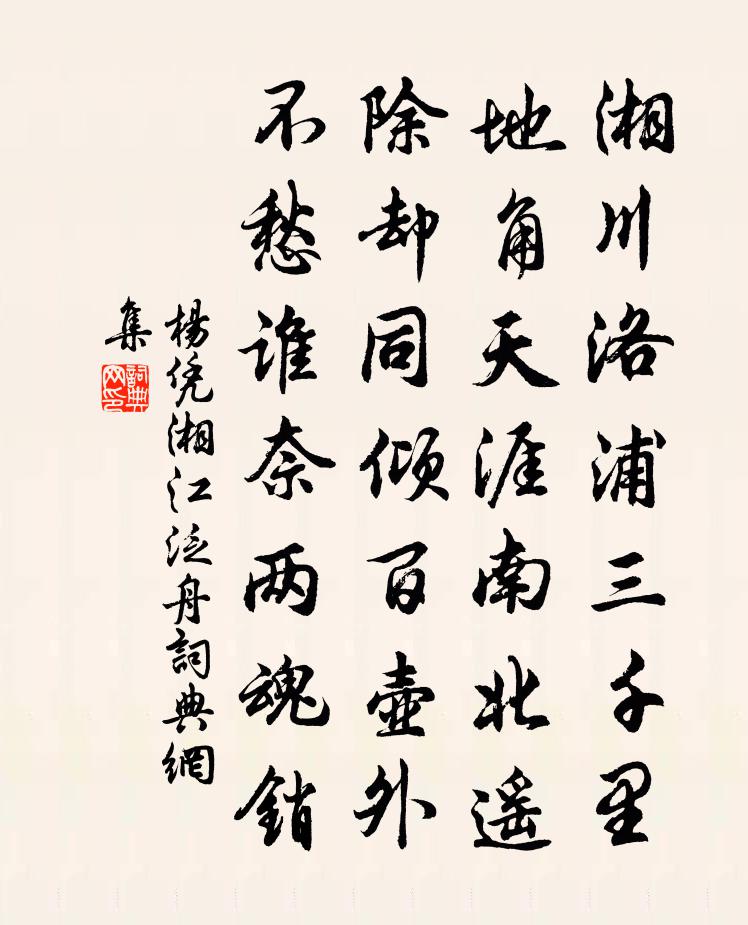 湘川洛浦三千里
地角天涯南北遥
除却同倾百壶外
不愁谁奈两魂销
楊凭湘江泛舟詞典網
集
詞典網印